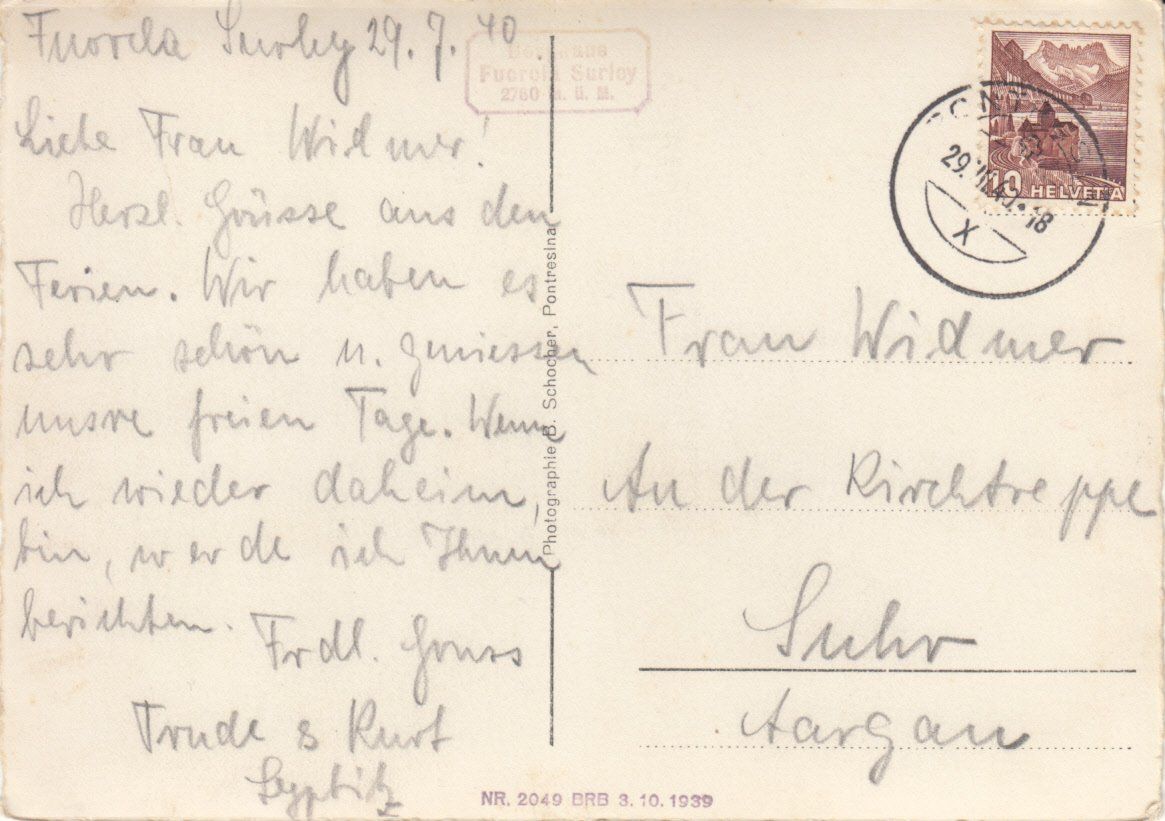 Fuorcla Surley 29. 7. 40
Berghaus
Fuorcla Surley
2760 m. ü. M.
Liebe Frau Widmer!
Herzl. Grüsse aus den
Ferien. Wir haben es
sehr schön u. geniessen
unsre freien Tage. Wenn
ich wieder daheim,
bin, werde ich Ihnen
berichten.
Frdl. Gruss
Trude & Kurt
Photographie B. Schocher, Pontresina
29. VII 40 · 18
X
10 HELVETIA
Frau Widmer
An der Kirchtreppe
Suhr
Aargau
NR. 2049 BRB 3. 10. 1939